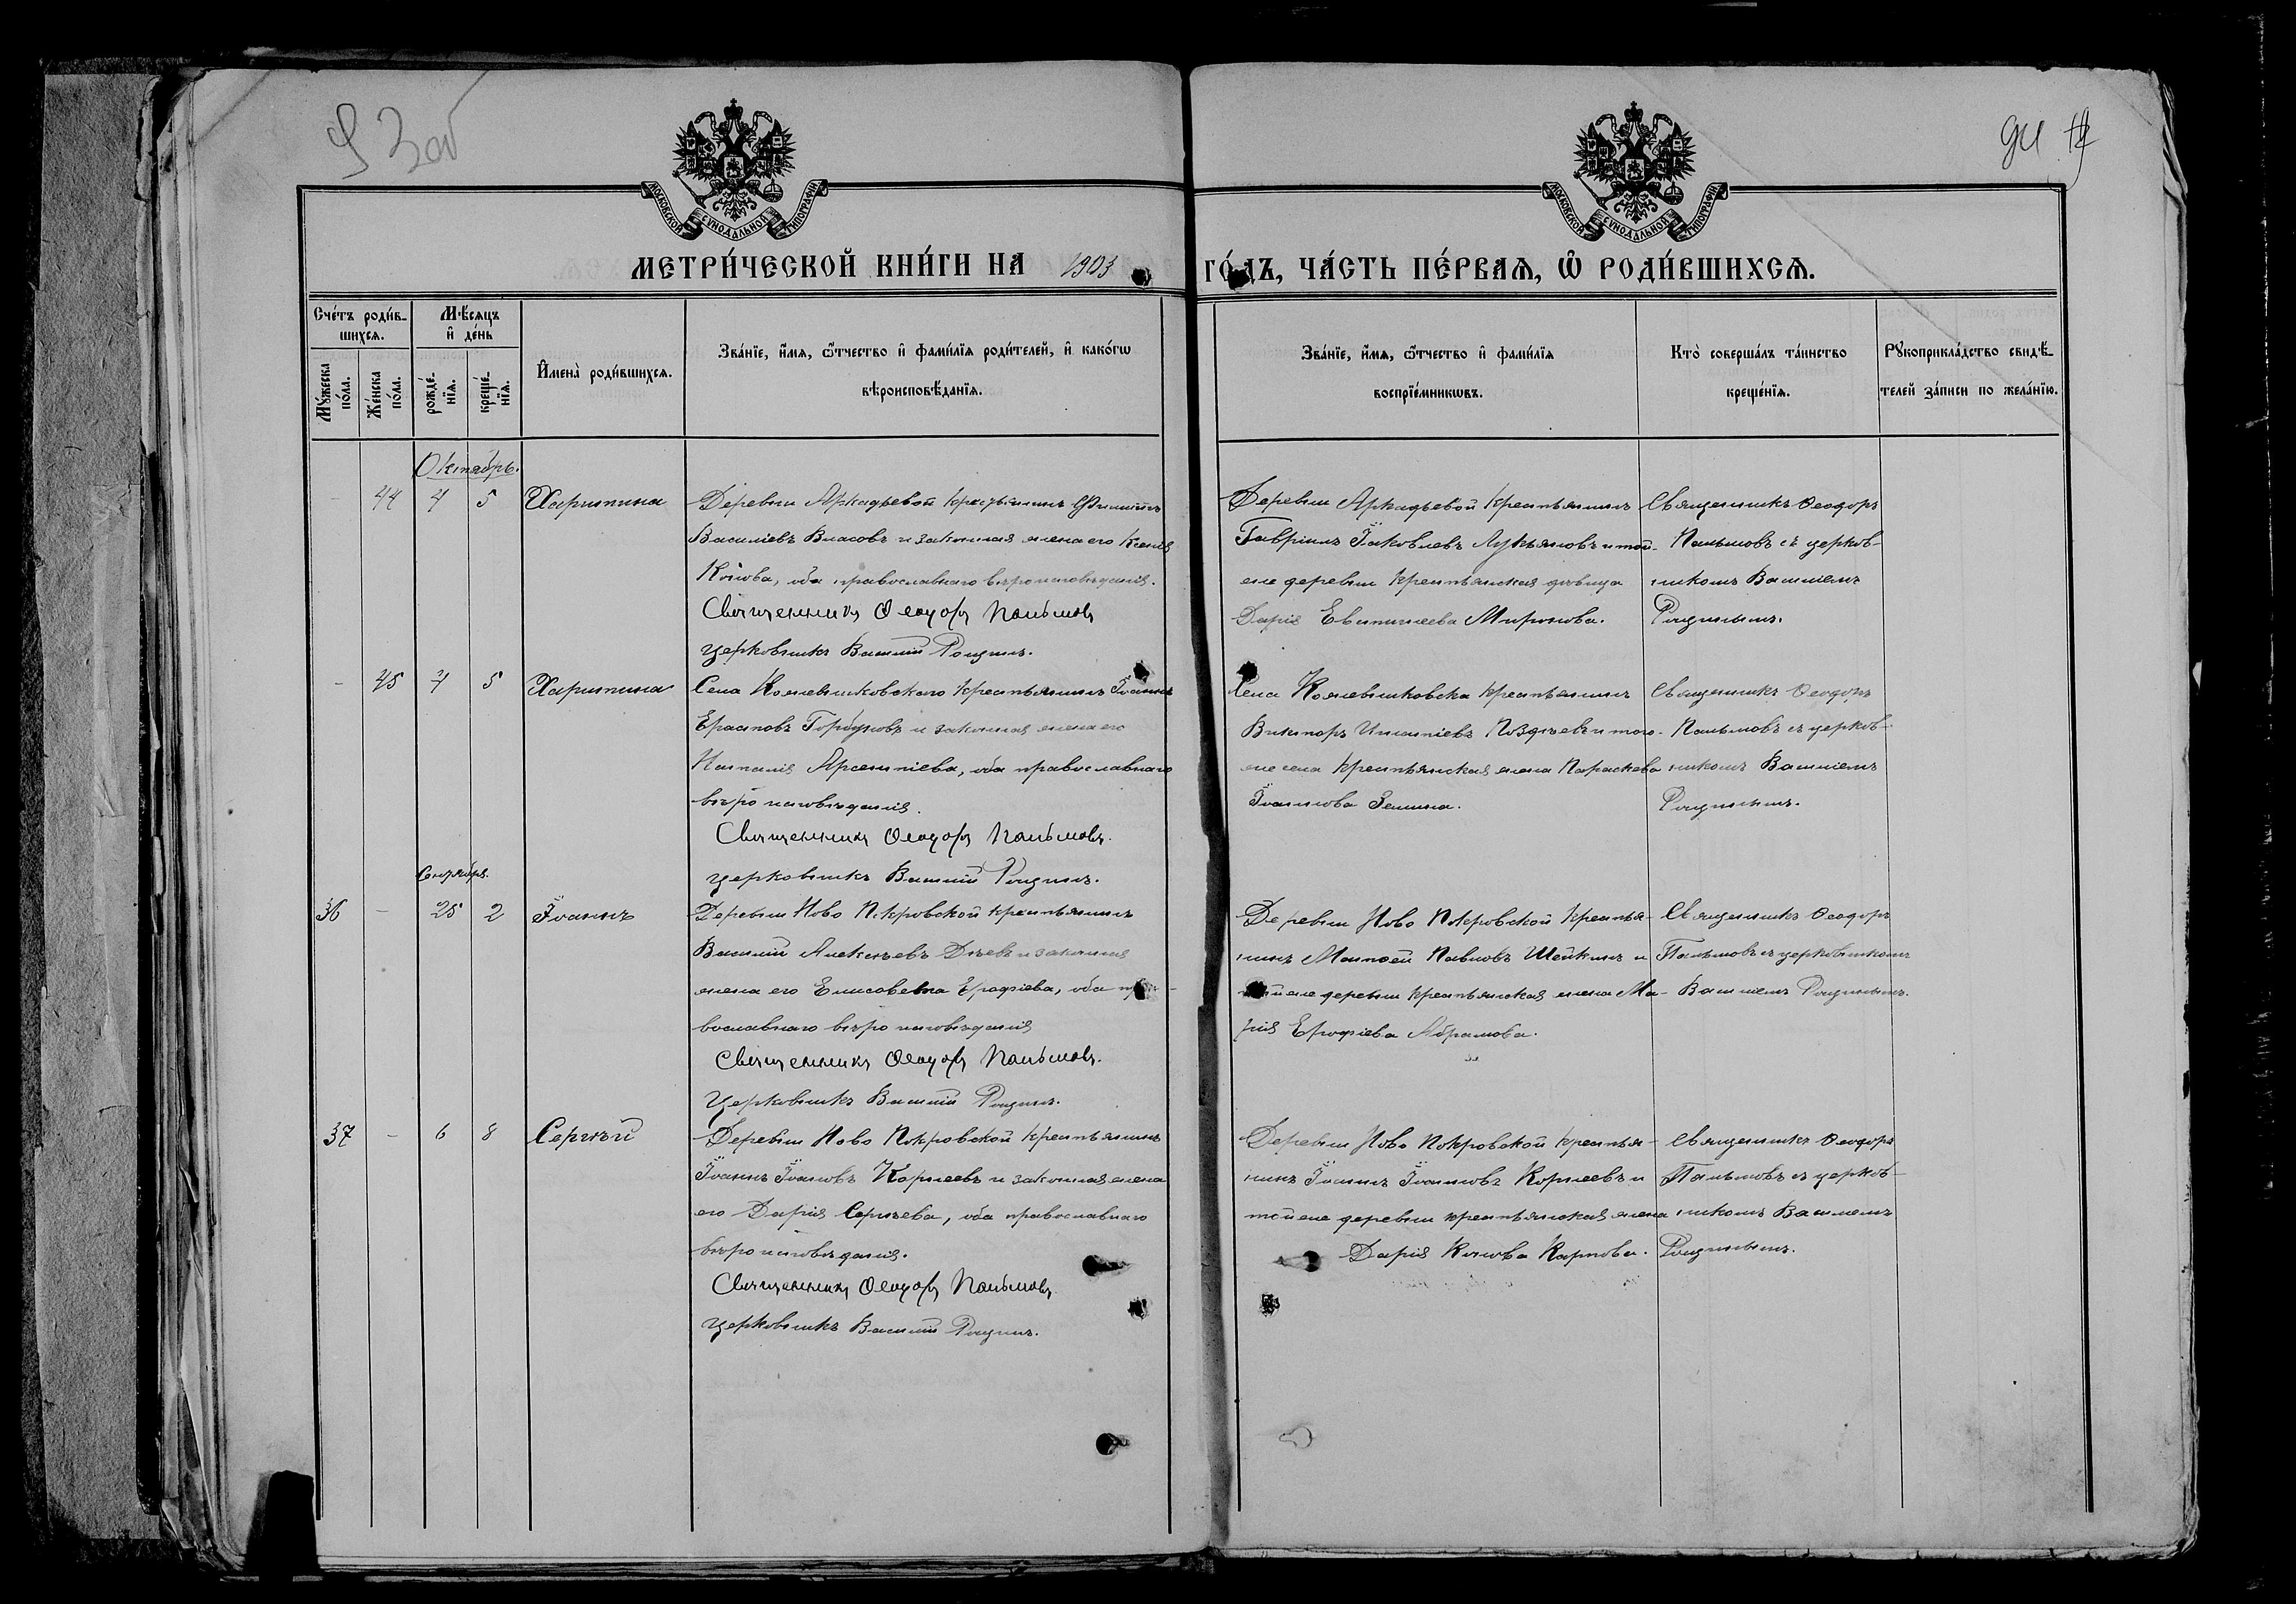 93об
94
МОСКОВСКОЙ СУНОДАЛЬНОЙ ТИПОГРАФІИ
МОСКОВСКОЙ СУНОДАЛЬНОЙ ТИПОГРАФІИ
МЕТРИ́ЧЕСКОЙ КНИ́ГИ НА 1903 ГО́ДЪ, ЧА́СТЬ ПЕ́РВАѦ, Ѡ҆ РОДИ́ВШИХСѦ.
Сче́тъ роди́в-
шихсѧ.
Мꙋ́жеска
по́ла.
Же́нска
по́ла.
Мѣ́сѧцъ
и҆ де́нь
рожде́-
нїѧ.
креще́-
нїѧ.
И҆мена̀ роди́вшихсѧ.
Зва́нїе, и҆́мѧ, ѻ҆́тчество и҆ фами́лїѧ роди́телей, и҆ како́гѡ
вѣроисповѣ́данїѧ.
Зва́нїе, и҆́мѧ, ѻ҆́тчество и҆ фами́лїѧ
воспрїе́мникѡвъ.
Кто̀ соверша́лъ та́инство
креще́нїѧ.
Рꙋкоприкла́дство свидѣ́-
телей за́писи по жела́нїю.
Октябрь.
- 44 4 5 Харитина
Деревни Аркадьевой крестьянинъ Филиппъ
Василіевъ Власовъ и законная жена его Ксенія
православнаго вѣроисповѣданія.
Священникъ Ѳеодоръ Пальмовъ
Церковникъ Василій Рощинъ.
Деревни Аркадьевой крестьянинъ
Гавріилъ Іаковлевъ Лукьяновъ и той-
же деревни крестьянская дѣвица
Дарія Евтихіева Миронова.
Священникъ Ѳеодоръ
Пальмовъ съ церков-
никомъ Василіемъ
Рощинымъ.
- 45 4 5 Харитина
Села крестьянинъ Іоаннъ
Ерастовъ Горбуновъ и законная жена его
Наталія Арсентіева, оба православнаго
вѣроисповѣданія.
Священникъ Ѳеодоръ Пальмовъ.
Церковникъ Василій Рощинъ.
Села крестьянинъ
Викторъ Игнатіевъ Поздѣевъ и того-
же села крестьянская жена Параскева
Іоаннова Зенина.
Священникъ Ѳеодоръ
Пальмовъ съ церков-
никомъ Василіемъ
Рощинымъ.
Сентябрь.
36 - 25 2 Іоаннъ
Деревни Ново Покровской крестьянинъ
Василій Алексѣевъ Дѣевъ и законная
жена его Елисавета Ерофіева, оба пра-
вославнаго вѣроисповѣданія
Священникъ Ѳеодоръ Пальмовъ.
Церковникъ Василій Рощинъ.
Деревни Ново Покровской крестья-
нинъ Матѳей Павловъ Шейкинъ и
той же деревни крестьянская жена Ма-
рія Ерофіева Абрамова.
Священникъ Ѳеодоръ
Пальмовъ съ церковникомъ
Василіемъ Рощинымъ.
37 - 6 8 Сергѣй
Деревни Ново Покровской крестьянинъ
Іоаннъ Іоанновъ Корнеевъ и законная жена
его Дарія Сергѣева, оба православнаго
вѣроисповѣданія.
Священникъ Ѳеодоръ Пальмовъ
Церковникъ Василій Рощинъ.
Деревни Ново Покровской крестья-
нинъ Іоаннъ Іоанновъ Корнеевъ и
той же деревни крестьянская жена
Дарія Карпова.
Священникъ Ѳеодоръ
Пальмовъ съ церков-
никомъ Василіемъ
Рощинымъ.